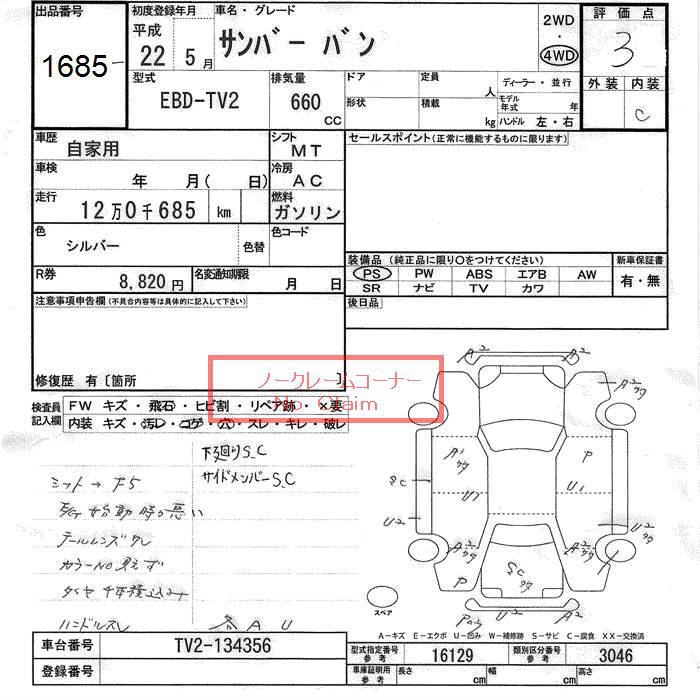 出品番号
1685
初度登録年月
平成
22 5月
車名・グレード
サンバー バン
2WD
・
4WD
評価点
3
外装 内装
C
型式
EBD-TV2
排気量
660
CC
ドア 定員 人
形状 積載 kg
ディーラー・並行
モデル年式 年
ハンドル 左・右
車歴 自家用
シフト MT
車検 年 月( 日)
冷房 AC
走行 12万0千685 km
燃料 ガソリン
色 シルバー 色替
色コード
R券 8,820円
名変通知期限 月 日
セールスポイント(正常に機能するものに限ります)
装備品 (純正品に限り○をつけてください)
新車保証書
PS PW ABS エアB AW
SR ナビ TV カワ
有・無
後日品
注意事項申告欄(不具合内容等は具体的に記入して下さい)
修復歴 有〔箇所 〕
ノークレームコーナー
No Claim
検査員
記入欄
FW キズ・飛石・ヒビ割・リペア跡・×要
内装 キズ・汚レ・コゲ・穴・スレ・キレ・破レ
下廻りS.C
サイドメンバーS.C
シフト→F5
始動時の悪い
テールレンズワレ
カラーNO見えず
ハンドルスレ
各 A U
A2
A2
A2 ワク
A1 ワク
P
U1
U1
SC
U2
U2 ワク
A2 ワク
A2 ワク
P
SC ワク
U2
A2
スペア
A-キズ E-エクボ U-凹み W-補修跡 S-サビ C-腐食 XX-交換済
車台番号 TV2-134356
登録番号
型式指定番号 参考 16129
類別区分番号 参考 3046
車庫証明用 参考 長さ cm 幅 cm 高さ cm